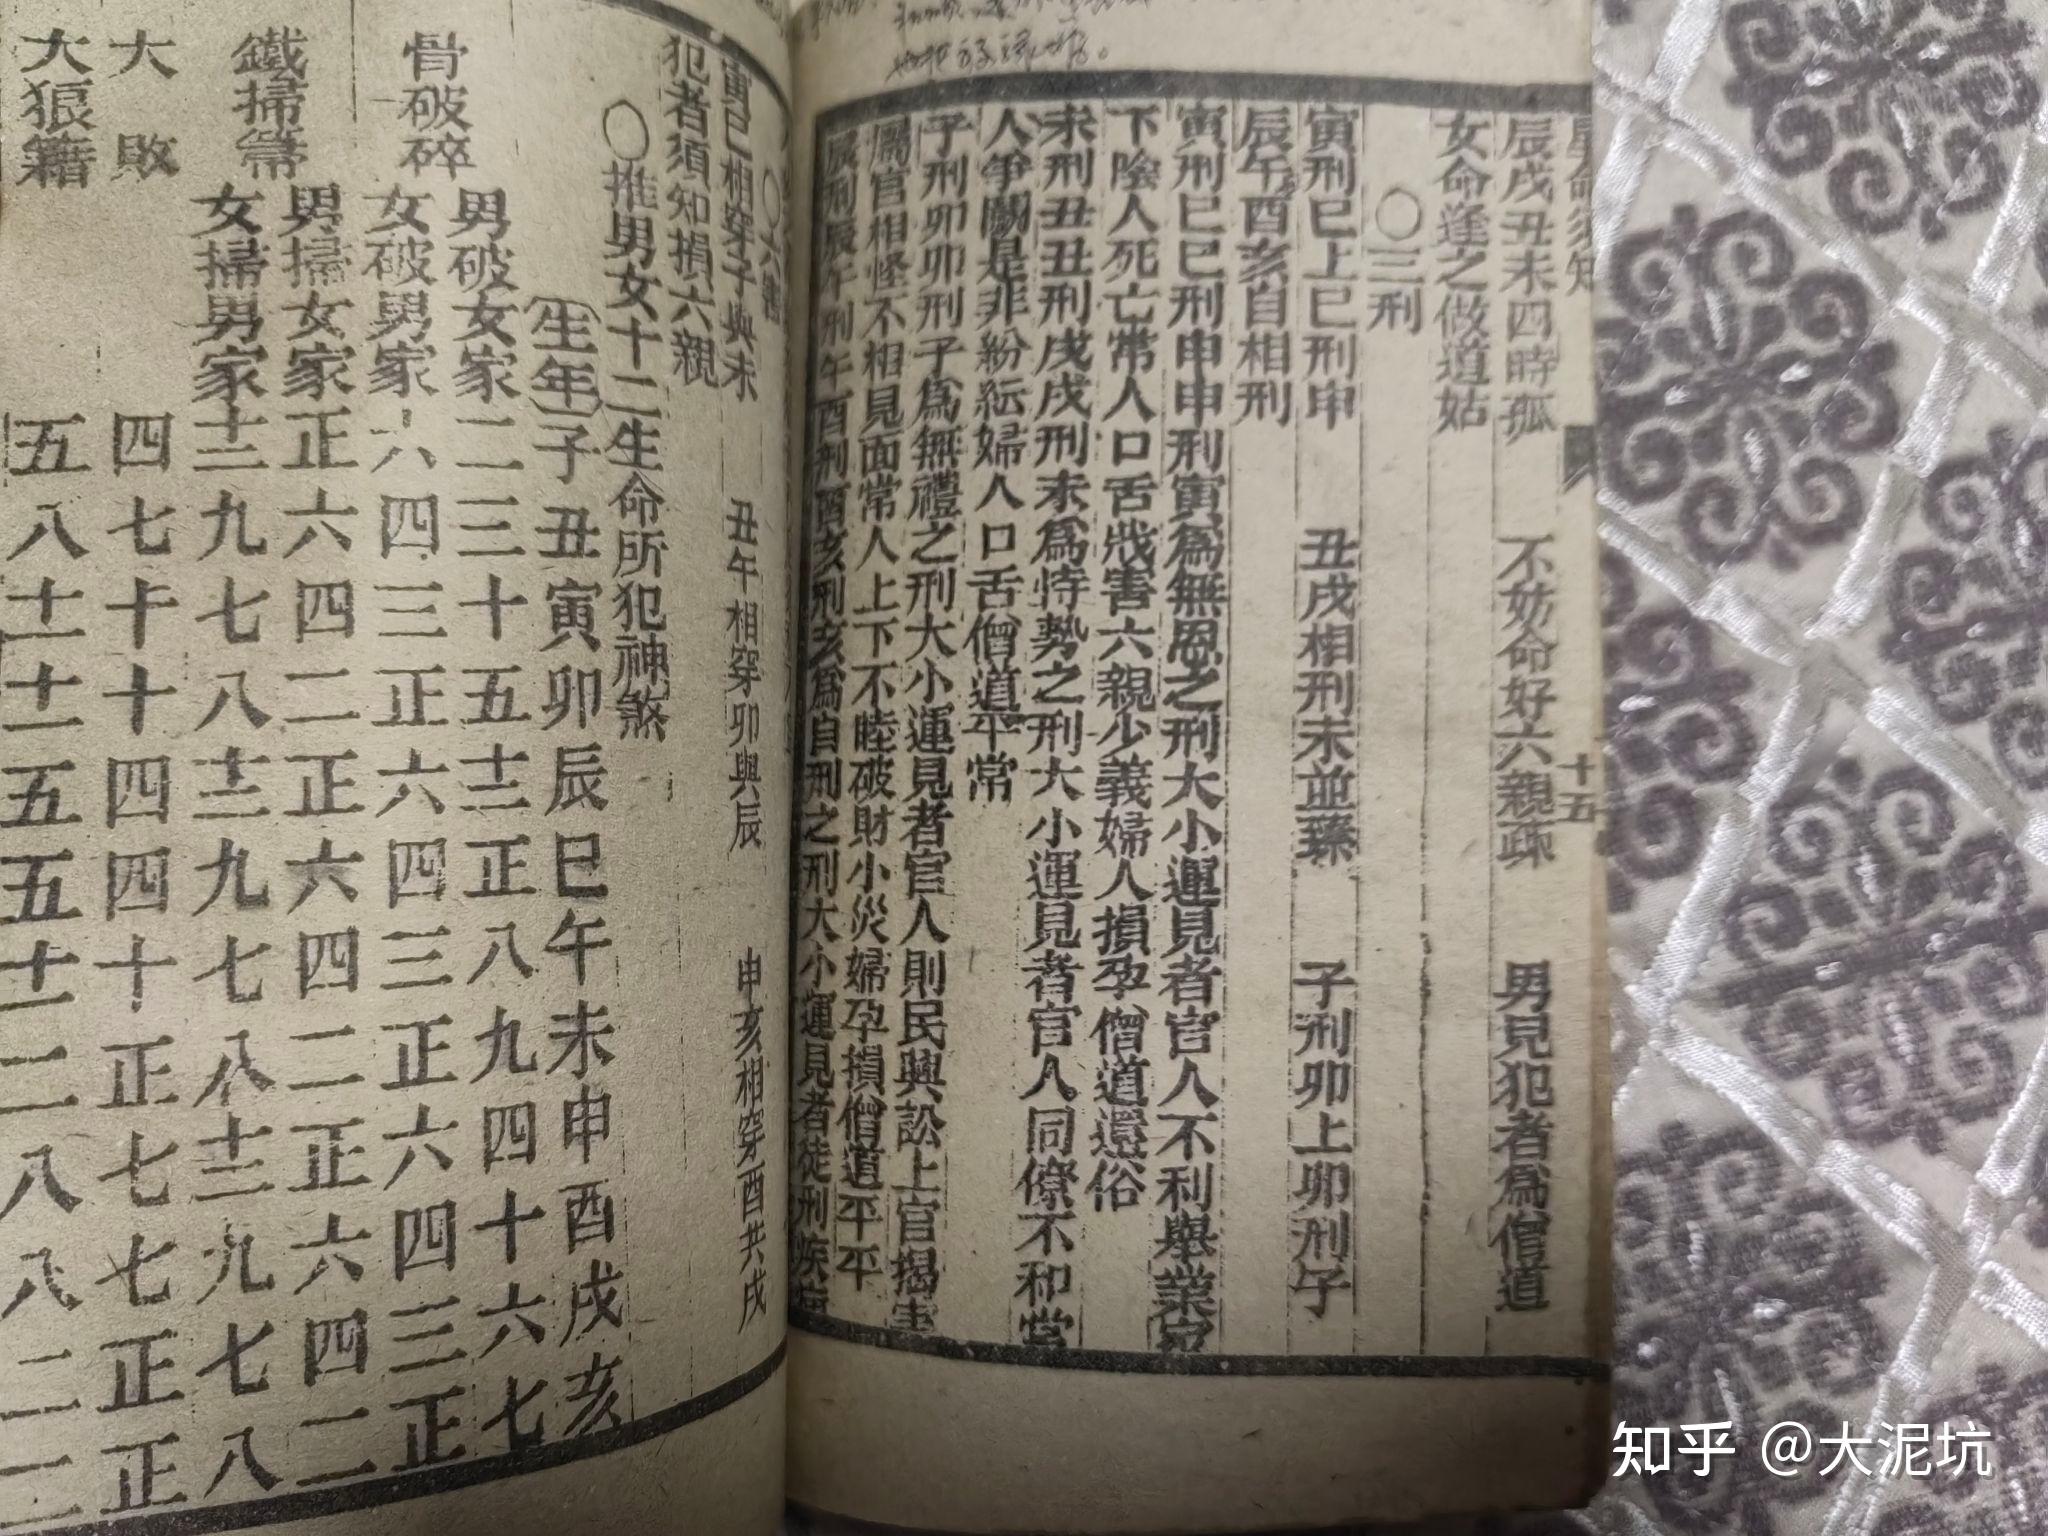 星命須知
十五
辰戌丑未四時孤 不妨命好六親疎 男兒犯者爲僧道
女命逢之做道姑
○三刑
寅刑巳上巳刑申 丑戌相刑未並臻 子刑卯上卯刑子
辰午酉亥自相刑
寅刑巳巳刑申申刑寅爲無恩之刑大小運見者官人不利舉業家
下陰人死亡常人口舌戕害六親少義婦人損孕僧道還俗
未刑丑丑刑戌戌刑未爲恃勢之刑大小運見者官人同僚不和常
人爭鬬是非紛紜婦人口舌僧道平常
子刑卯卯刑子爲無禮之刑大小運見者官人則民興訟上官揭害
屬官相怪不相見面常人上下不睦破財小災婦孕損僧道平平
辰刑辰午刑午酉刑酉亥刑亥爲自刑之刑大小運見者徒刑疾
○六害
寅巳相穿子與未 丑午相穿卯與辰 申亥相穿酉共戌
犯者須知損六親
○推男女十二生命所犯神煞
生年 子丑寅卯辰巳午未申酉戌亥
骨破碎 男破女家 二三十五十二正八九四十六七
女破男家 六四三正六四三正六四三正
鐵掃箒 男掃女家 正六四二正六四二正六四二
女掃男家 十二九七八十二九七八十二九七八
大敗 四七十十四四十正七七正正
大狼籍 五八十一十一五五十一二八八二二
知乎 @大泥坑